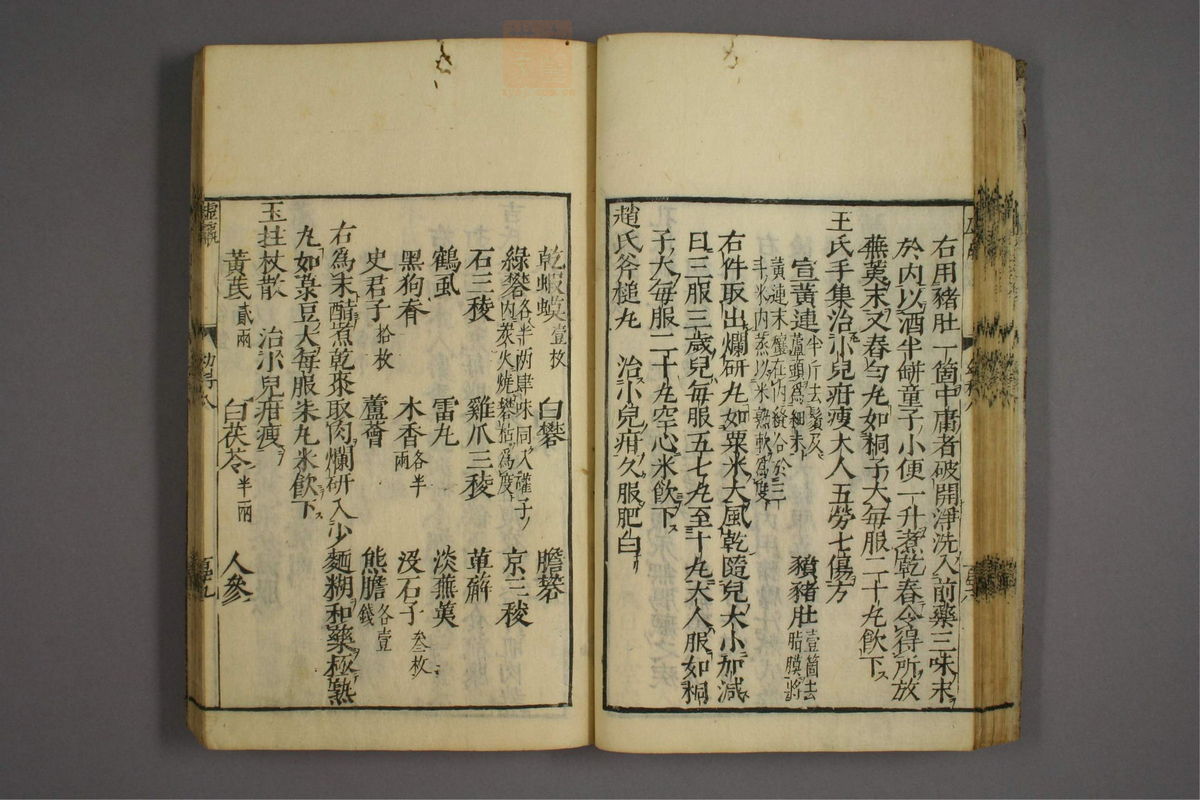 右用豬肚一箇中庸者破開淨洗入前藥三味末
於內以酒半缾童子小便一升煮乾舂令得所放
蕪荑末又舂勻丸如桐子大每服二十丸飲下
王氏手集治小兒疳瘦大人五勞七傷方
宣黃連半斤去鬚及蘆頭爲細末 豶豬肚壹箇去脂膜將
黃連末蟹在內縫合於三斗米內蒸以米熟軟爲
右件取出爛研丸如粟米大風乾隨兒大小加減
日三服三歲兒每服五七丸至十丸大人服如桐
子大每服二十丸空心米飲下
趙氏斧槌丸 治小兒疳久服肥白
乾蝦蟆壹枚 白礬 膽礬
綠礬各半兩肆味同入礶子內炭火燒礬枯爲度 京三稜
石三稜 雞爪三稜 萆薢
鶴虱 雷丸 淡蕪荑
黑狗脊 木香各半兩 沒石子叁枚
史君子拾枚 蘆薈 熊膽各壹錢
右爲末醋煮乾棗取肉爛研入少麵糊和藥極熟
丸如菉豆大每服米丸米飲下
玉拄杖散 治小兒疳瘦
黃芪貳兩 白茯苓半兩 人參